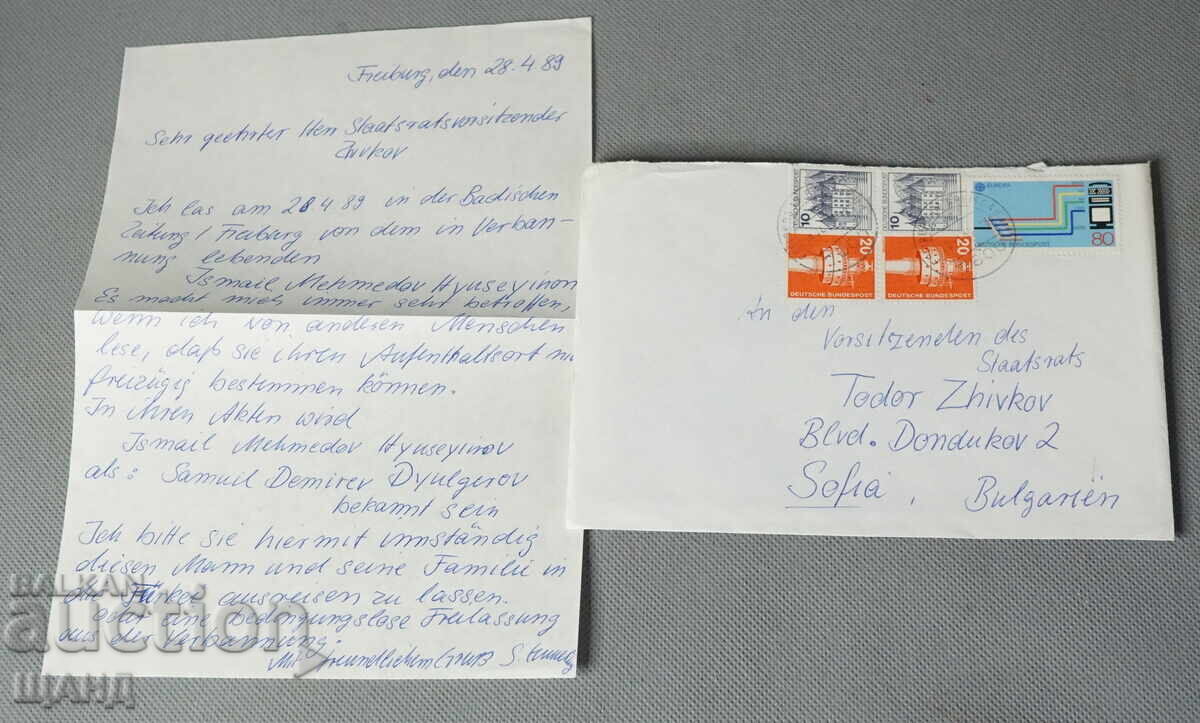 Freiburg, den 28.4.89
Sehr geehrter Herr Staatsratsvorsitzender
Zivkov
Ich las am 28 4 89 in der Badischen
Zeitung / Freiburg von dem in Verban-
nung lebenden
Ismail Mehmedov Hyuseyinov
Es macht mich immer sehr betroffen,
wenn ich von anderen Menschen
lese, daß sie ihren Aufenthaltsort
freizügig bestimmen können.
In ihren Akten wird
Ismail Mehmedov Hyuseyinov
als: Samuil Demirev Dyulgerov
bekannt sein
Ich bitte sie hiermit innständig
diesen Mann und seine Familie in
die Türkei ausreisen zu lassen.
oder eine bedingungslose Freilassung
aus der Verbannung.
Mit freundlichem Gruß S.
DEUTSCHE BUNDESPOST
10
DEUTSCHE BUNDESPOST
10
EUROPA
DEUTSCHE BUNDESPOST
80
20
DEUTSCHE BUNDESPOST
20
DEUTSCHE BUNDESPOST
An den
Vorsitzenden des
Staatsrats
Todor Zhivkov
Blvd. Dondukov 2
Sofia, Bulgarien
BALKAN
auction
ЩАНД